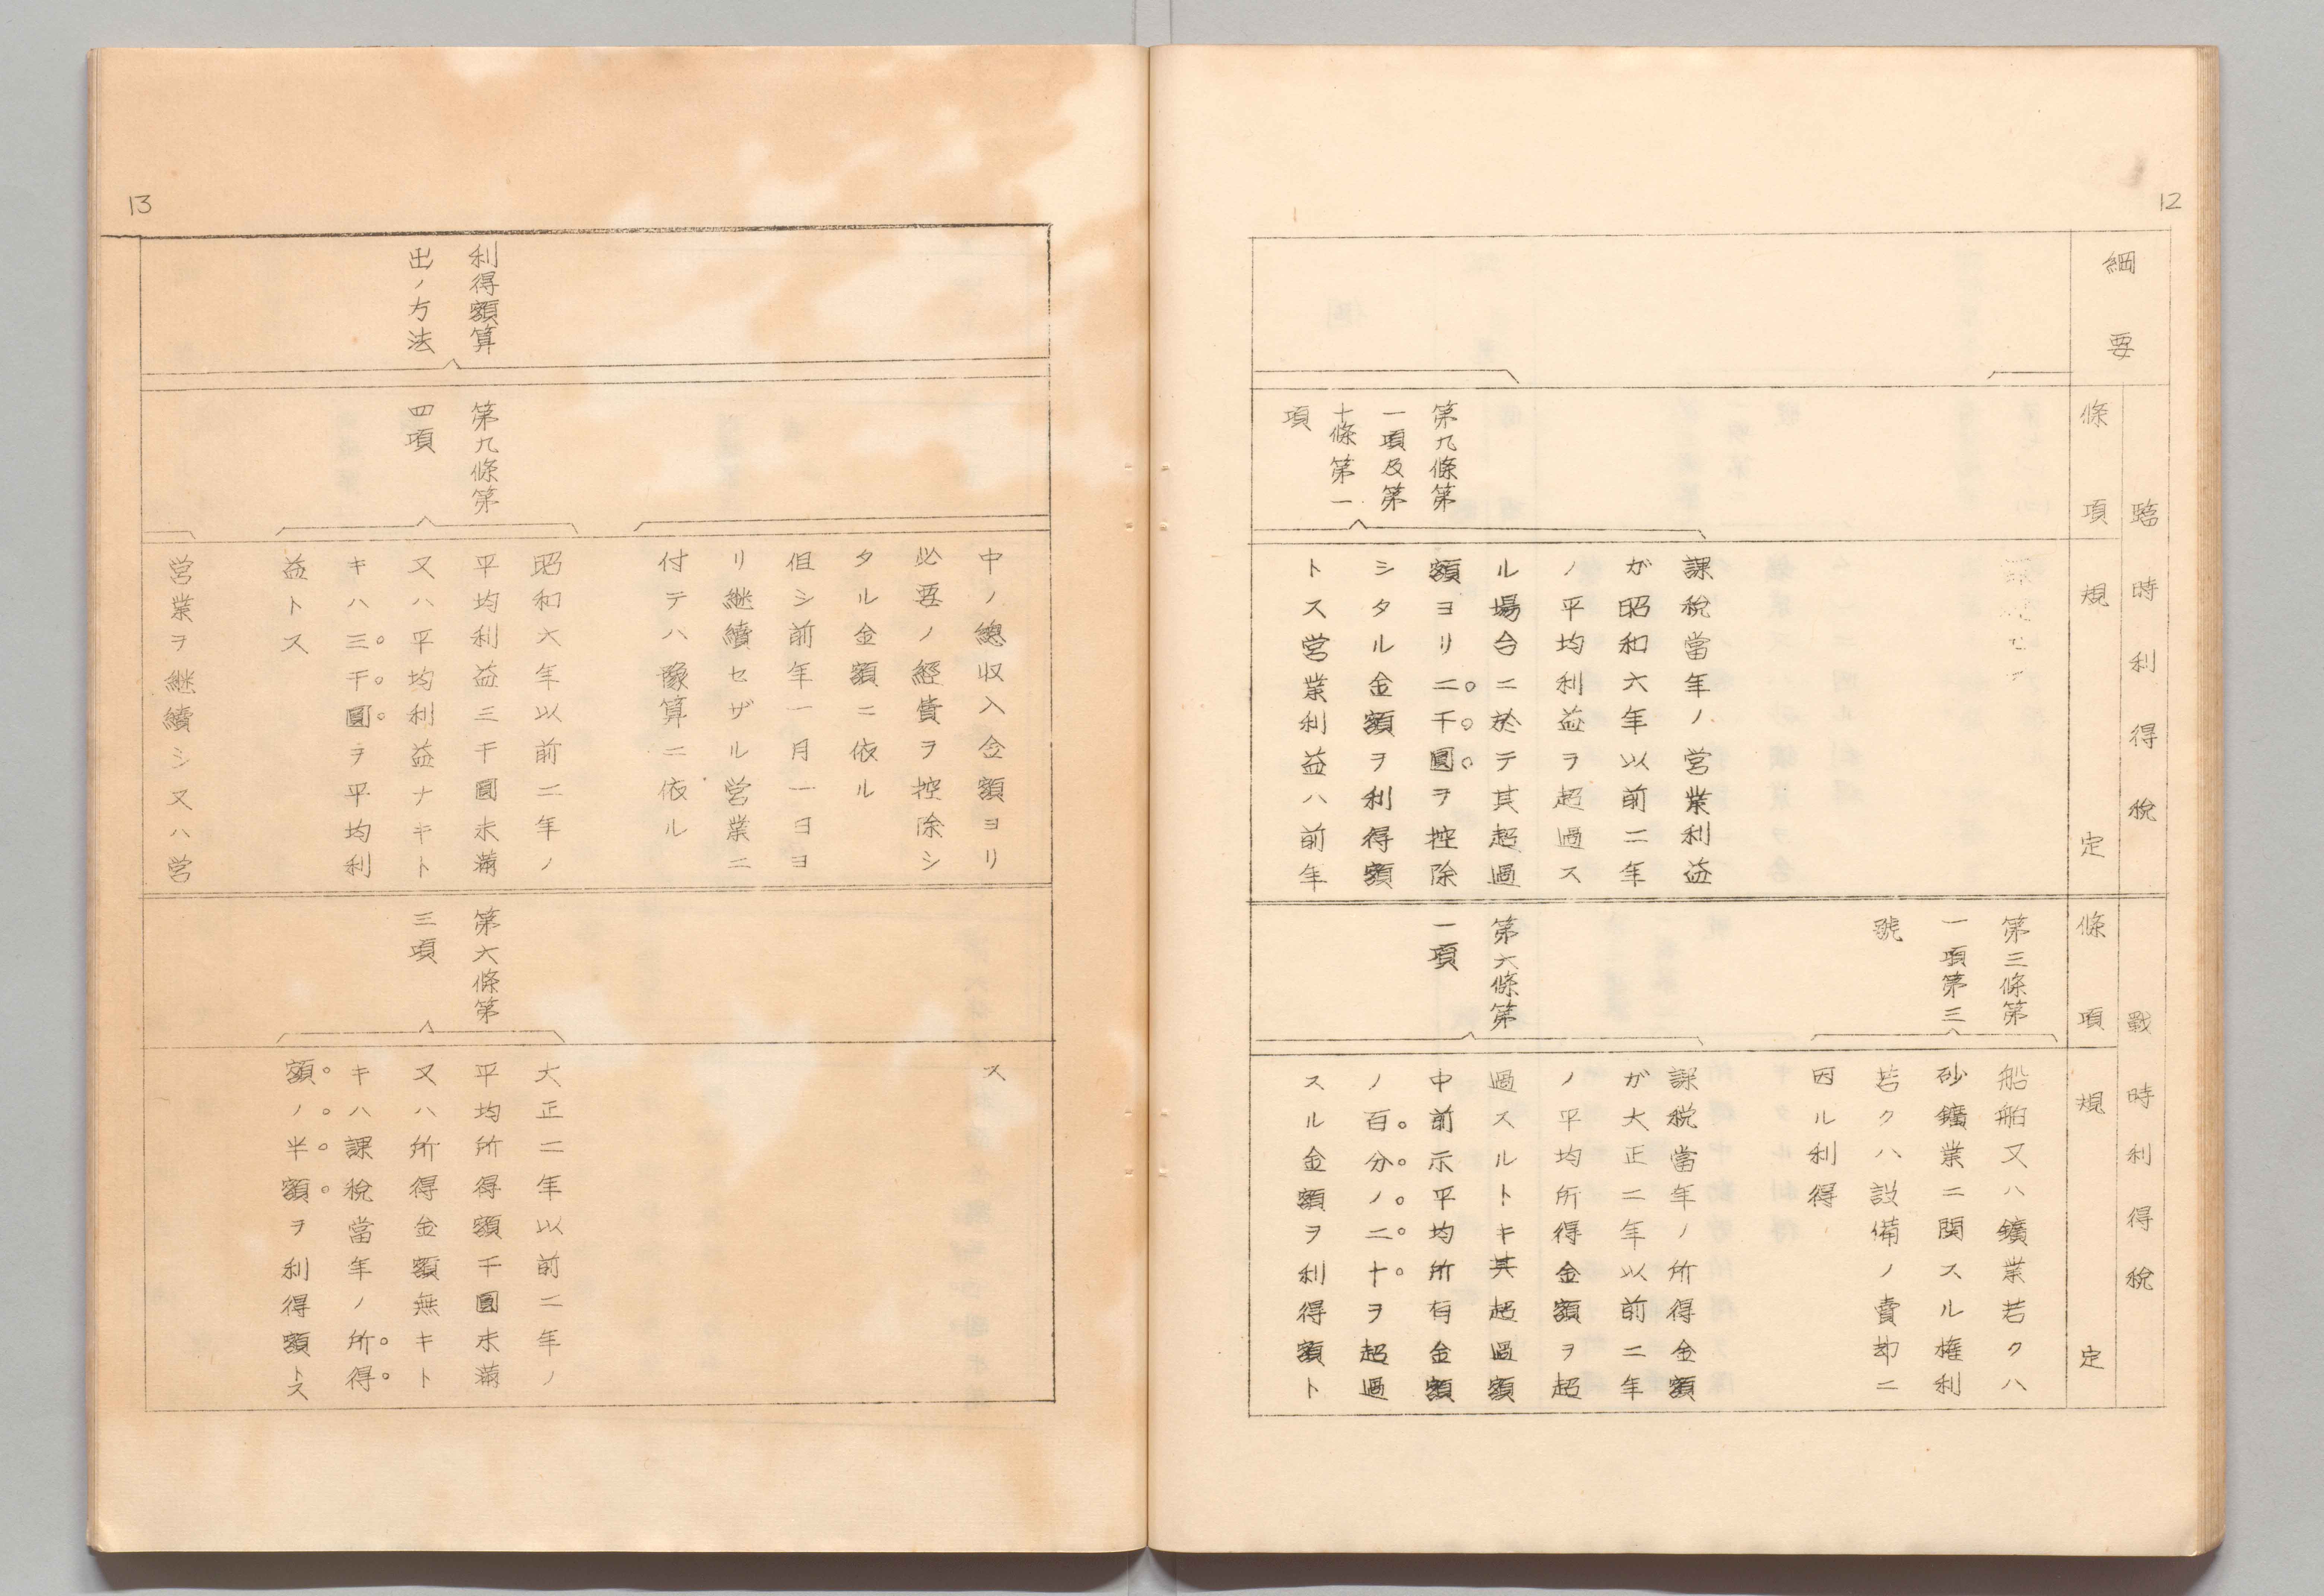 12
綱要
臨時利得稅
條項
規定
第九條第
一項及第
十條第一
項
課稅當年ノ営業利益
ガ昭和六年以前二年
ノ平均利益ヲ超過ス
ル場合ニ於テ其超過
額ヨリ二千圓ヲ控除
シタル金額ヲ利得額
トス営業利益ハ前年
戰時利得稅
條項
規定
第三條第
一項第三
號
船舶又ハ鑛業若クハ
砂鑛業ニ関スル権利
若クハ設備ノ賣却ニ
因ル利得
第六條第
一項
課稅當年ノ所得金額
ガ大正二年以前二年
ノ平均所得金額ヲ超
過スルトキ其超過額
中前示平均所有金額
ノ百分ノ二十ヲ超過
スル金額ヲ利得額ト
13
利得額算
出ノ方法
第九條第
四項
中ノ總収入金額ヨリ
必要ノ經費ヲ控除シ
タル金額ニ依ル
但シ前年一月一日ヨ
リ継續セザル営業ニ
付テハ豫算ニ依ル
昭和六年以前二年ノ
平均利益三千圓未満
又ハ平均利益ナキト
キハ三千圓ヲ平均利
益トス
営業ヲ継續シ又ハ営
ス
第六條第
三項
大正二年以前二年ノ
平均所得額千圓未満
又ハ所得金額無キト
キハ課稅當年ノ所得
額ノ半額ヲ利得額トス